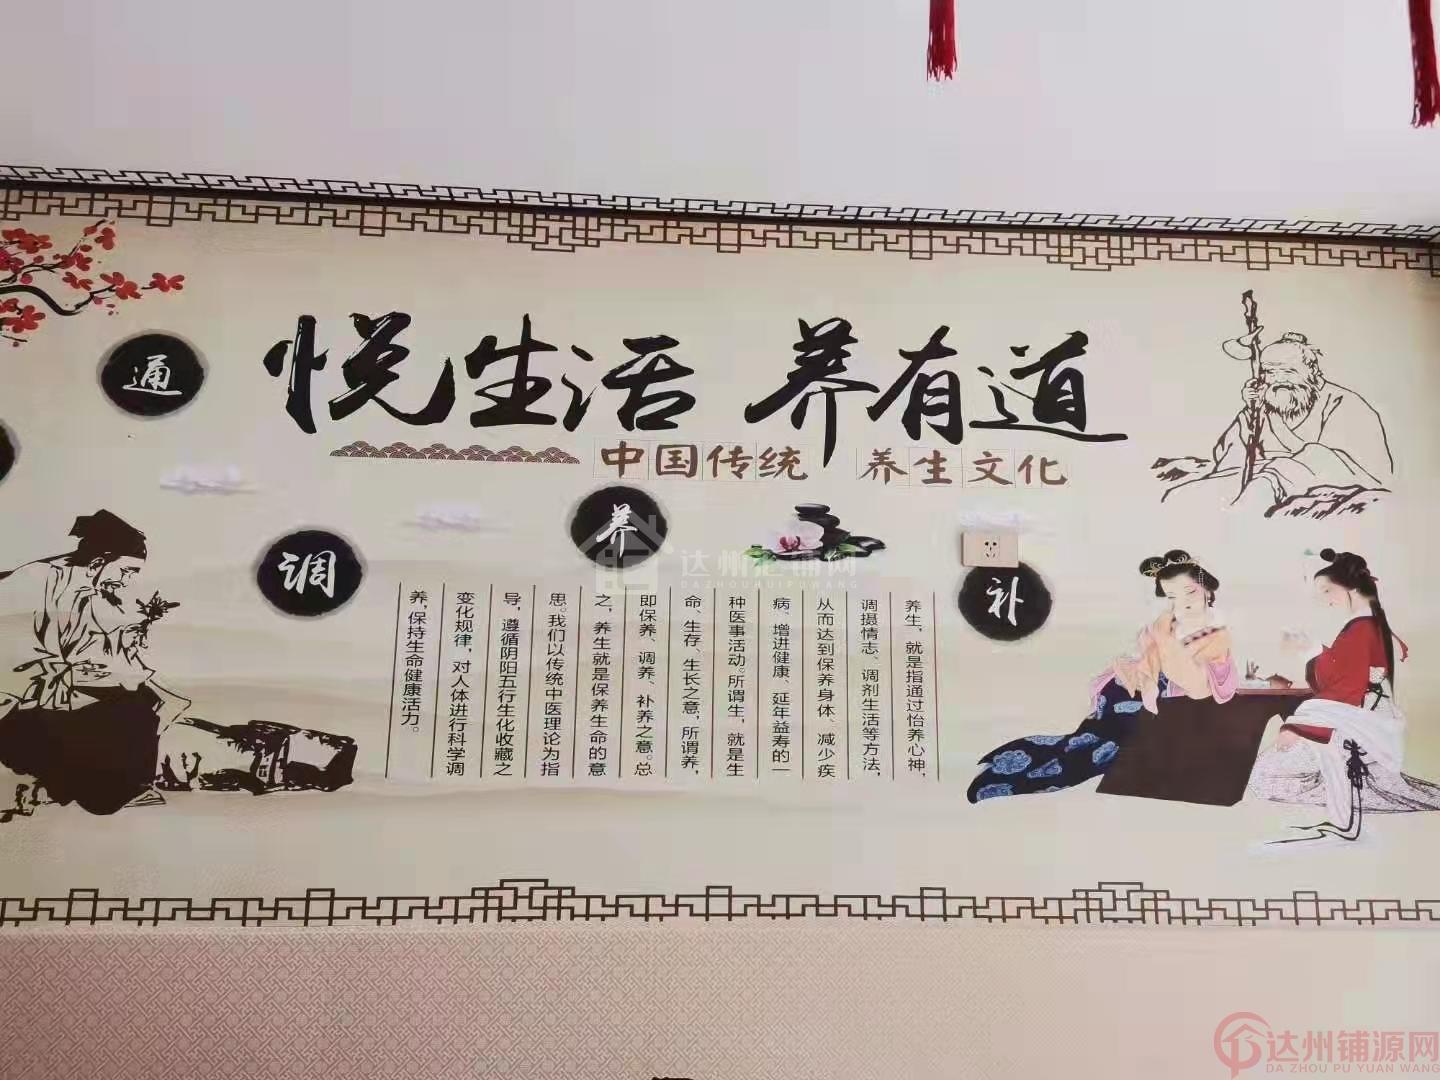 悦生活 养有道
中国传统 养生文化
通
调
养
补
养生，就是指通过怡养心神，
调摄情志、调剂生活等方法，
从而达到保养身体、减少疾
病、增进健康、延年益寿的一
种医事活动。所谓生，就是生
命、生存、生长之意，所谓养，
即保养、调养、补养之意。总
之，养生就是保养生命的意
思。我们以传统中医理论为指
导，遵循阴阳五行生化收藏之
变化规律，对人体进行科学调
养，保持生命健康活力。
达州汇铺网
DAZHOUHUIPUWANG
达州铺源网
DA ZHOU PU YUAN WANG